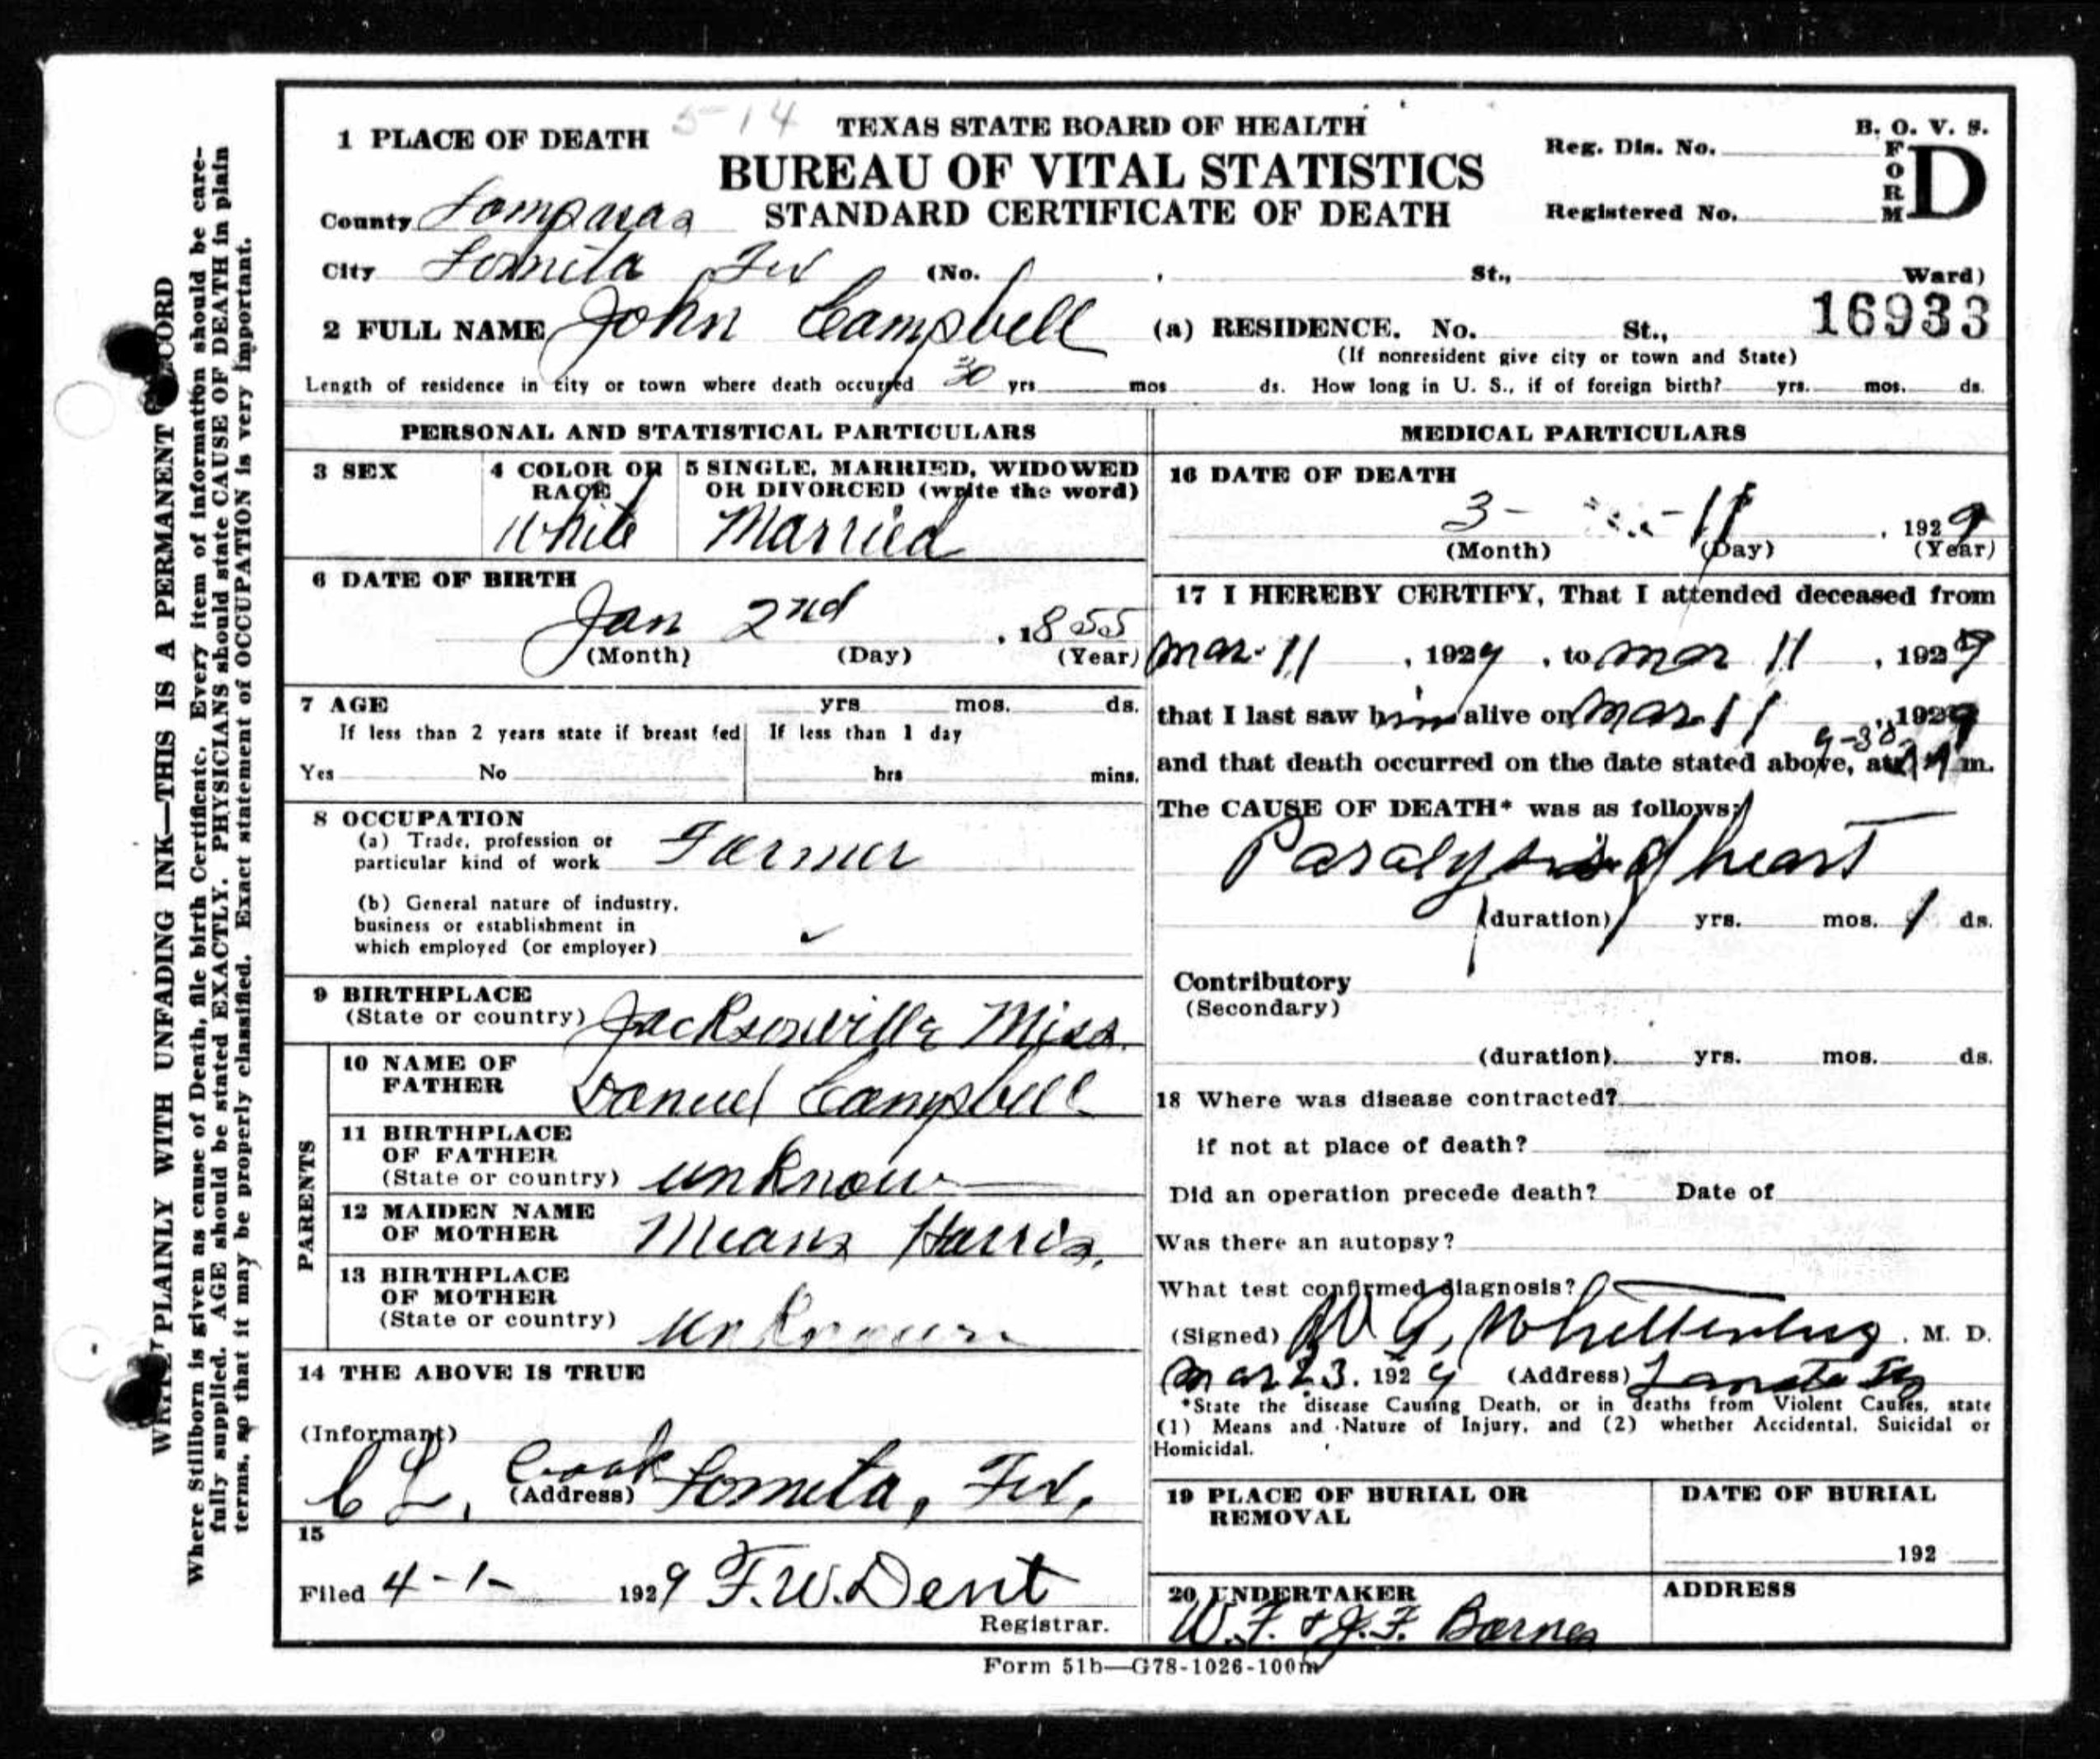 5-14
1 PLACE OF DEATH
TEXAS STATE BOARD OF HEALTH
BUREAU OF VITAL STATISTICS
STANDARD CERTIFICATE OF DEATH
Reg. Dis. No.
Registered No.
B. O. V. S.
FORM D
County Lampasas
City Lometa Tex (No. , St., Ward)
16933
2 FULL NAME John Campbell (a) RESIDENCE. No. St.,
(If nonresident give city or town and State)
Length of residence in city or town where death occurred 30 yrs mos ds. How long in U. S., if of foreign birth? yrs. mos. ds.
PERSONAL AND STATISTICAL PARTICULARS
3 SEX
4 COLOR OR RACE
White
5 SINGLE, MARRIED, WIDOWED
OR DIVORCED (write the word)
Married
6 DATE OF BIRTH
Jan 2nd , 1855
(Month) (Day) (Year)
7 AGE yrs mos. ds.
If less than 2 years state if breast fed
If less than 1 day
Yes No
hrs mins.
8 OCCUPATION
(a) Trade, profession or
particular kind of work Farmer
(b) General nature of industry,
business or establishment in
which employed (or employer)
9 BIRTHPLACE
(State or country) Jacksonville Miss.
PARENTS
10 NAME OF
FATHER Daniel Campbell
11 BIRTHPLACE
OF FATHER
(State or country) unknow
12 MAIDEN NAME
OF MOTHER Means Harris,
13 BIRTHPLACE
OF MOTHER
(State or country) unknown
14 THE ABOVE IS TRUE
(Informant)
C L. Cook
(Address) Lometa, Tex,
15
Filed 4-1- 1929 F.W. Dent
Registrar.
MEDICAL PARTICULARS
16 DATE OF DEATH
3- -11 , 1929
(Month) (Day) (Year)
17 I HEREBY CERTIFY, That I attended deceased from
mar. 11 , 1929 , to mar 11 , 1929
that I last saw him alive on mar 11 , 1929
9-30
and that death occurred on the date stated above, at m.
The CAUSE OF DEATH* was as follows:
Paralysis of heart
(duration) yrs. mos. 1 ds.
Contributory
(Secondary)
(duration) yrs. mos. ds.
18 Where was disease contracted?
if not at place of death?
Did an operation precede death? Date of
Was there an autopsy?
What test confirmed diagnosis?
(Signed) W G, Whittenburg , M. D.
mar 23. 1929 (Address) Lometa Tex
*State the disease Causing Death, or in deaths from Violent Causes, state
(1) Means and Nature of Injury, and (2) whether Accidental, Suicidal or
Homicidal.
19 PLACE OF BURIAL OR
REMOVAL
DATE OF BURIAL
192
20 UNDERTAKER
W.F. & J.F. Barnes
ADDRESS
Form 51b—G78-1026-100m
WRITE PLAINLY WITH UNFADING INK—THIS IS A PERMANENT RECORD
Where Stillborn is given as cause of Death, file birth Certificate. Every item of information should be care-
fully supplied. AGE should be stated EXACTLY. PHYSICIANS should state CAUSE OF DEATH in plain
terms, so that it may be properly classified. Exact statement of OCCUPATION is very important.